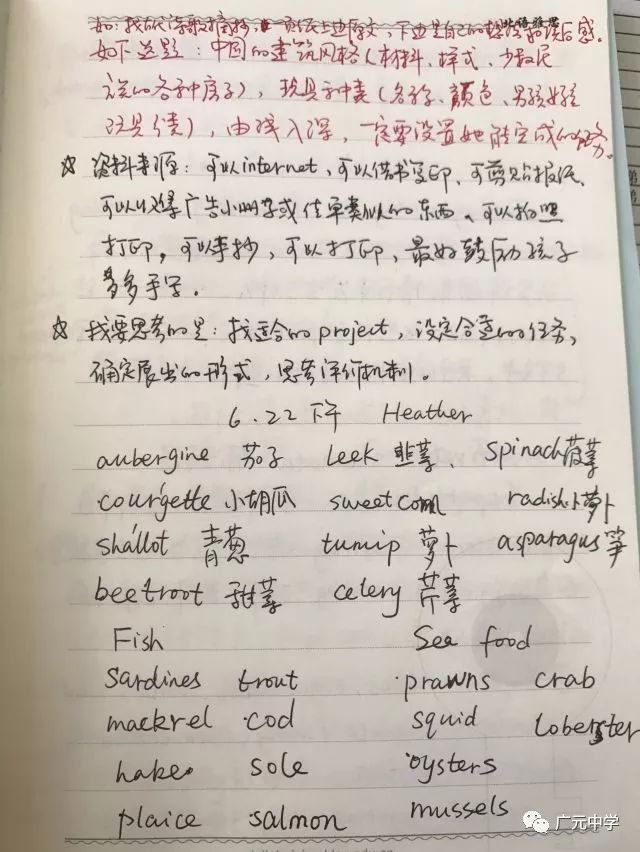 如：找古代诗歌摘抄，一页纸上边原文，下边是自己的想法和读后感。
北语雅思
如下选题：中国的建筑风格（材料、样式、少数民
族的各种房子），玩具种类（名称、颜色、男孩女孩
玩具等），由浅入深，一定要设置她能完成的任务。
☆ 资料来源：可以internet，可以借书复印，可剪贴报纸，
可以收集广告小册子或传单类似的东西、可以拍照
打印，可以手抄，可以打印，最好鼓励孩子
多多手写。
☆ 我要思考的是：找适合的project，设定合适的任务，
确定展出的形式，思考评价机制。
6.22 下午 Heather
aubergine 茄子 leek 韭菜、 spinach 菠菜
courgette 小胡瓜 sweet corn radish 小萝卜
shallot 青葱 turnip 萝卜 asparagus 笋
beetroot 甜菜 celery 芹菜
Fish Sea food
sardines trout prawns crab
mackrel cod squid loberster
hake sole oysters
plaice salmon mussels
广元中学